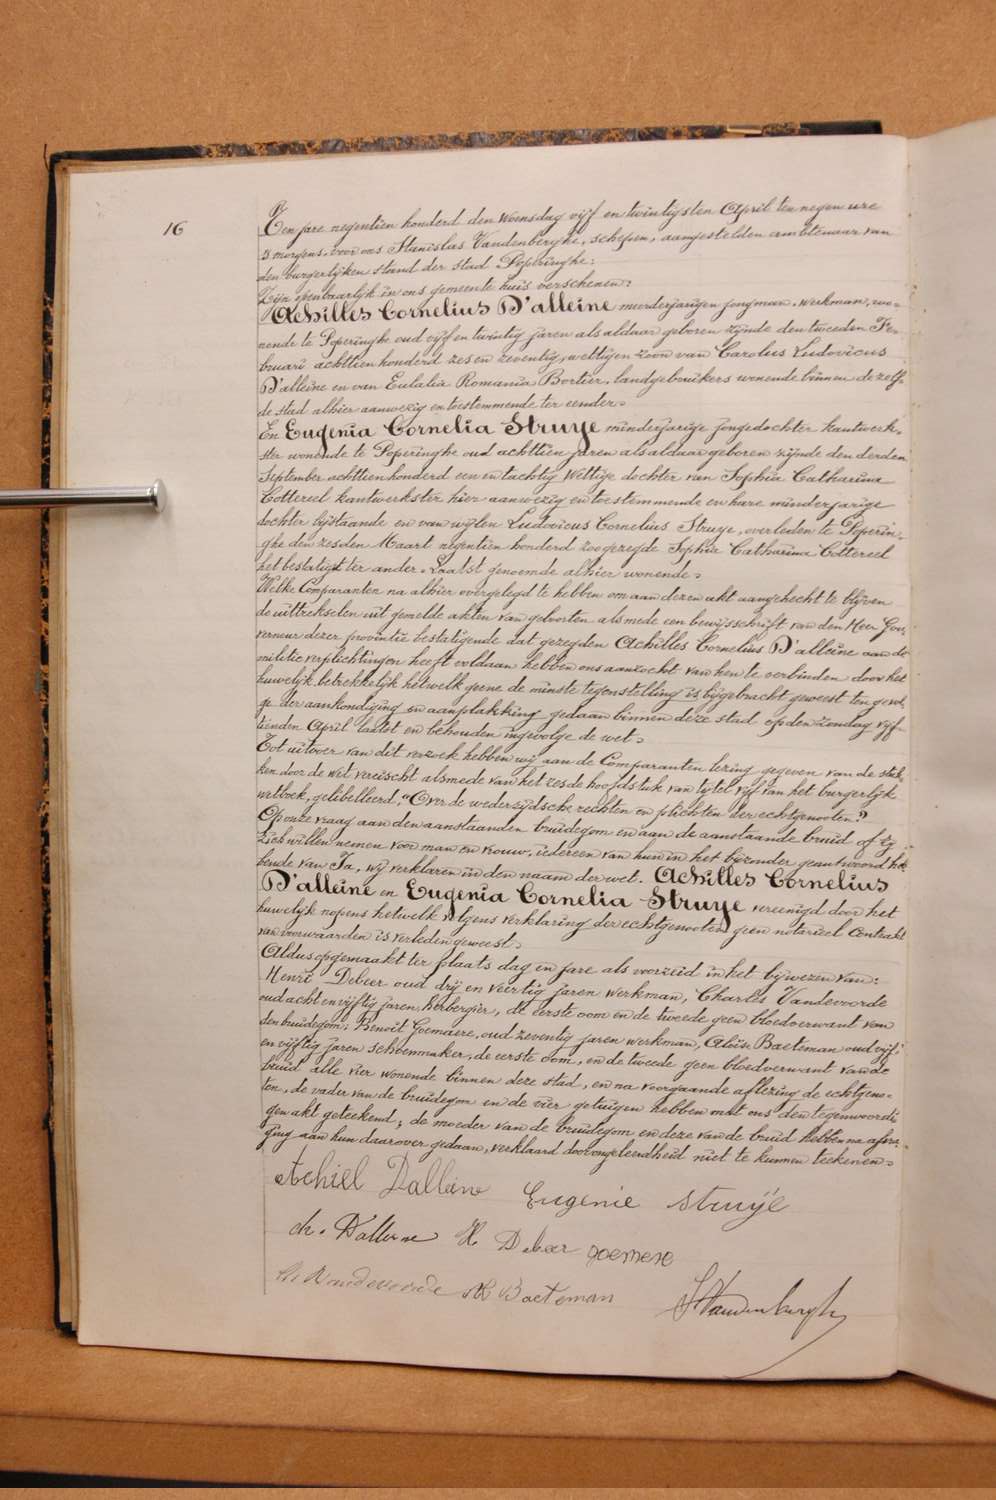 16
Ten jare negentien honderd den Woensdag vijf en twintigsten April ten negen ure
's morgens, voor ons Stanislas Vandenberghe, schepen, aangestelden ambtenaar van
den burgerlijken stand der stad Poperinghe:
Zijn openbaarlijk in ons gemeente huis verschenen:
Achilles Cornelius D'alleine meerderjarigen jongman, werkman, wo-
nende te Poperinghe oud vijf en twintig jaren als aldaar geboren zijnde den tweeden Fe-
bruari achttien honderd zes en zeventig, wettigen zoon van Carolus Ludovicus
D'alleine en van Eulalia Romania Bortier, landgebouikers wonende binnen dezelf-
de stad alhier aanwezig en toestemmende ter eender.
En Eugenia Cornelia Struye minderjarige jongedochter kantwerk-
ster wonende te Poperinghe oud achttien jaren als aldaar geboren zijnde den derden
September achttien honderd een en tachtig wettige dochter van Sophia Catharina
Cottereel kantwerkster hier aanwezig en toestemmende en hare minderjarige
dochter bijstaande en van wijlen Ludovicus Cornelius Struye, overleden te Poperin-
ghe den zesden Maart negentien honderd zoogezegde Sophia Catharina Cottereel
het bestatigt ter ander. Laatst genoemde alhier wonende.
Welke Comparanten na alhier overgelegd te hebben om aan dezen akt aangehecht te blijven
de uittrekselen uit gemelde akten van geboorten alsmede een bewijsschrift van den Heer Gou-
verneur dezer provintie bestatigende dat gezegden Achilles Cornelius D'alleine aan de
militie verplichtingen heeft voldaan hebben ons aanzocht van hen te verbinden door het
huwelijk betrekkelijk hetwelk geene de minste tegenstelling is bijgebracht geweest ten gevol-
ge der aankondiging en aanplakking gedaan binnen deze stad op den zondag vijf-
tienden April laatst en behouden ingevolge de wet.
Tot uitvoer van dit verzoek hebben wij aan de Comparanten lezing gegeven van de stuk-
ken door de wet vereischt alsmede van het zesde hoofdstuk van tytel vijf van het burgerlijk
wetboek, gelibelleerd; "Over de wederzijdsche rechten en plichten der echtgenooten."
Op onze vraag aan den aanstaanden bruidegom en aan de aanstaande bruid of zij
zich willen nemen voor man en vrouw, iedereen van hun in het bijzonder geantwoord heb-
bende van Ja, wij verklaren in den naam der wet. Achilles Cornelius
D'alleine en Eugenia Cornelia Struye vereenigd door het
huwelijk nopens hetwelk volgens verklaring der echtgenooten geen notarieel Contrakt
van voorwaarden is verleden geweest.
Aldus opgemaakt ter plaats dag en jare als voorzeid in het bijwezen van:
Henri Debeer oud drij en veertig jaren werkman, Charles Vandevoorde
oud acht en vijftig jaren Herbergier, de eerste oom en de tweede geen bloedverwant van
den bruidegom; Benoit Goemaere, oud zeventig jaren werkman, Aloïs Baeteman oud vijf
en vijftig jaren schoenmaker, de eerste oom, en de tweede geen bloedverwant van de
bruid alle vier wonende binnen deze stad, en na voorgaande aflezing de echtgenoo-
ten, de vader van de bruidegom en de vier getuigen hebben met ons den tegenwoordi-
gen akt geteekend; de moeder van de bruidegom en deze van de bruid hebben na afvra-
ging aan hun daarover gedaan, verklaard door ongeleerdheid niet te kunnen teekenen.
Achiel Dalleine Eugenie Struÿe
ch. Dalleine H Debeer goemere
Ch Vandevoorde Al Baeteman
S. Vandenberghe